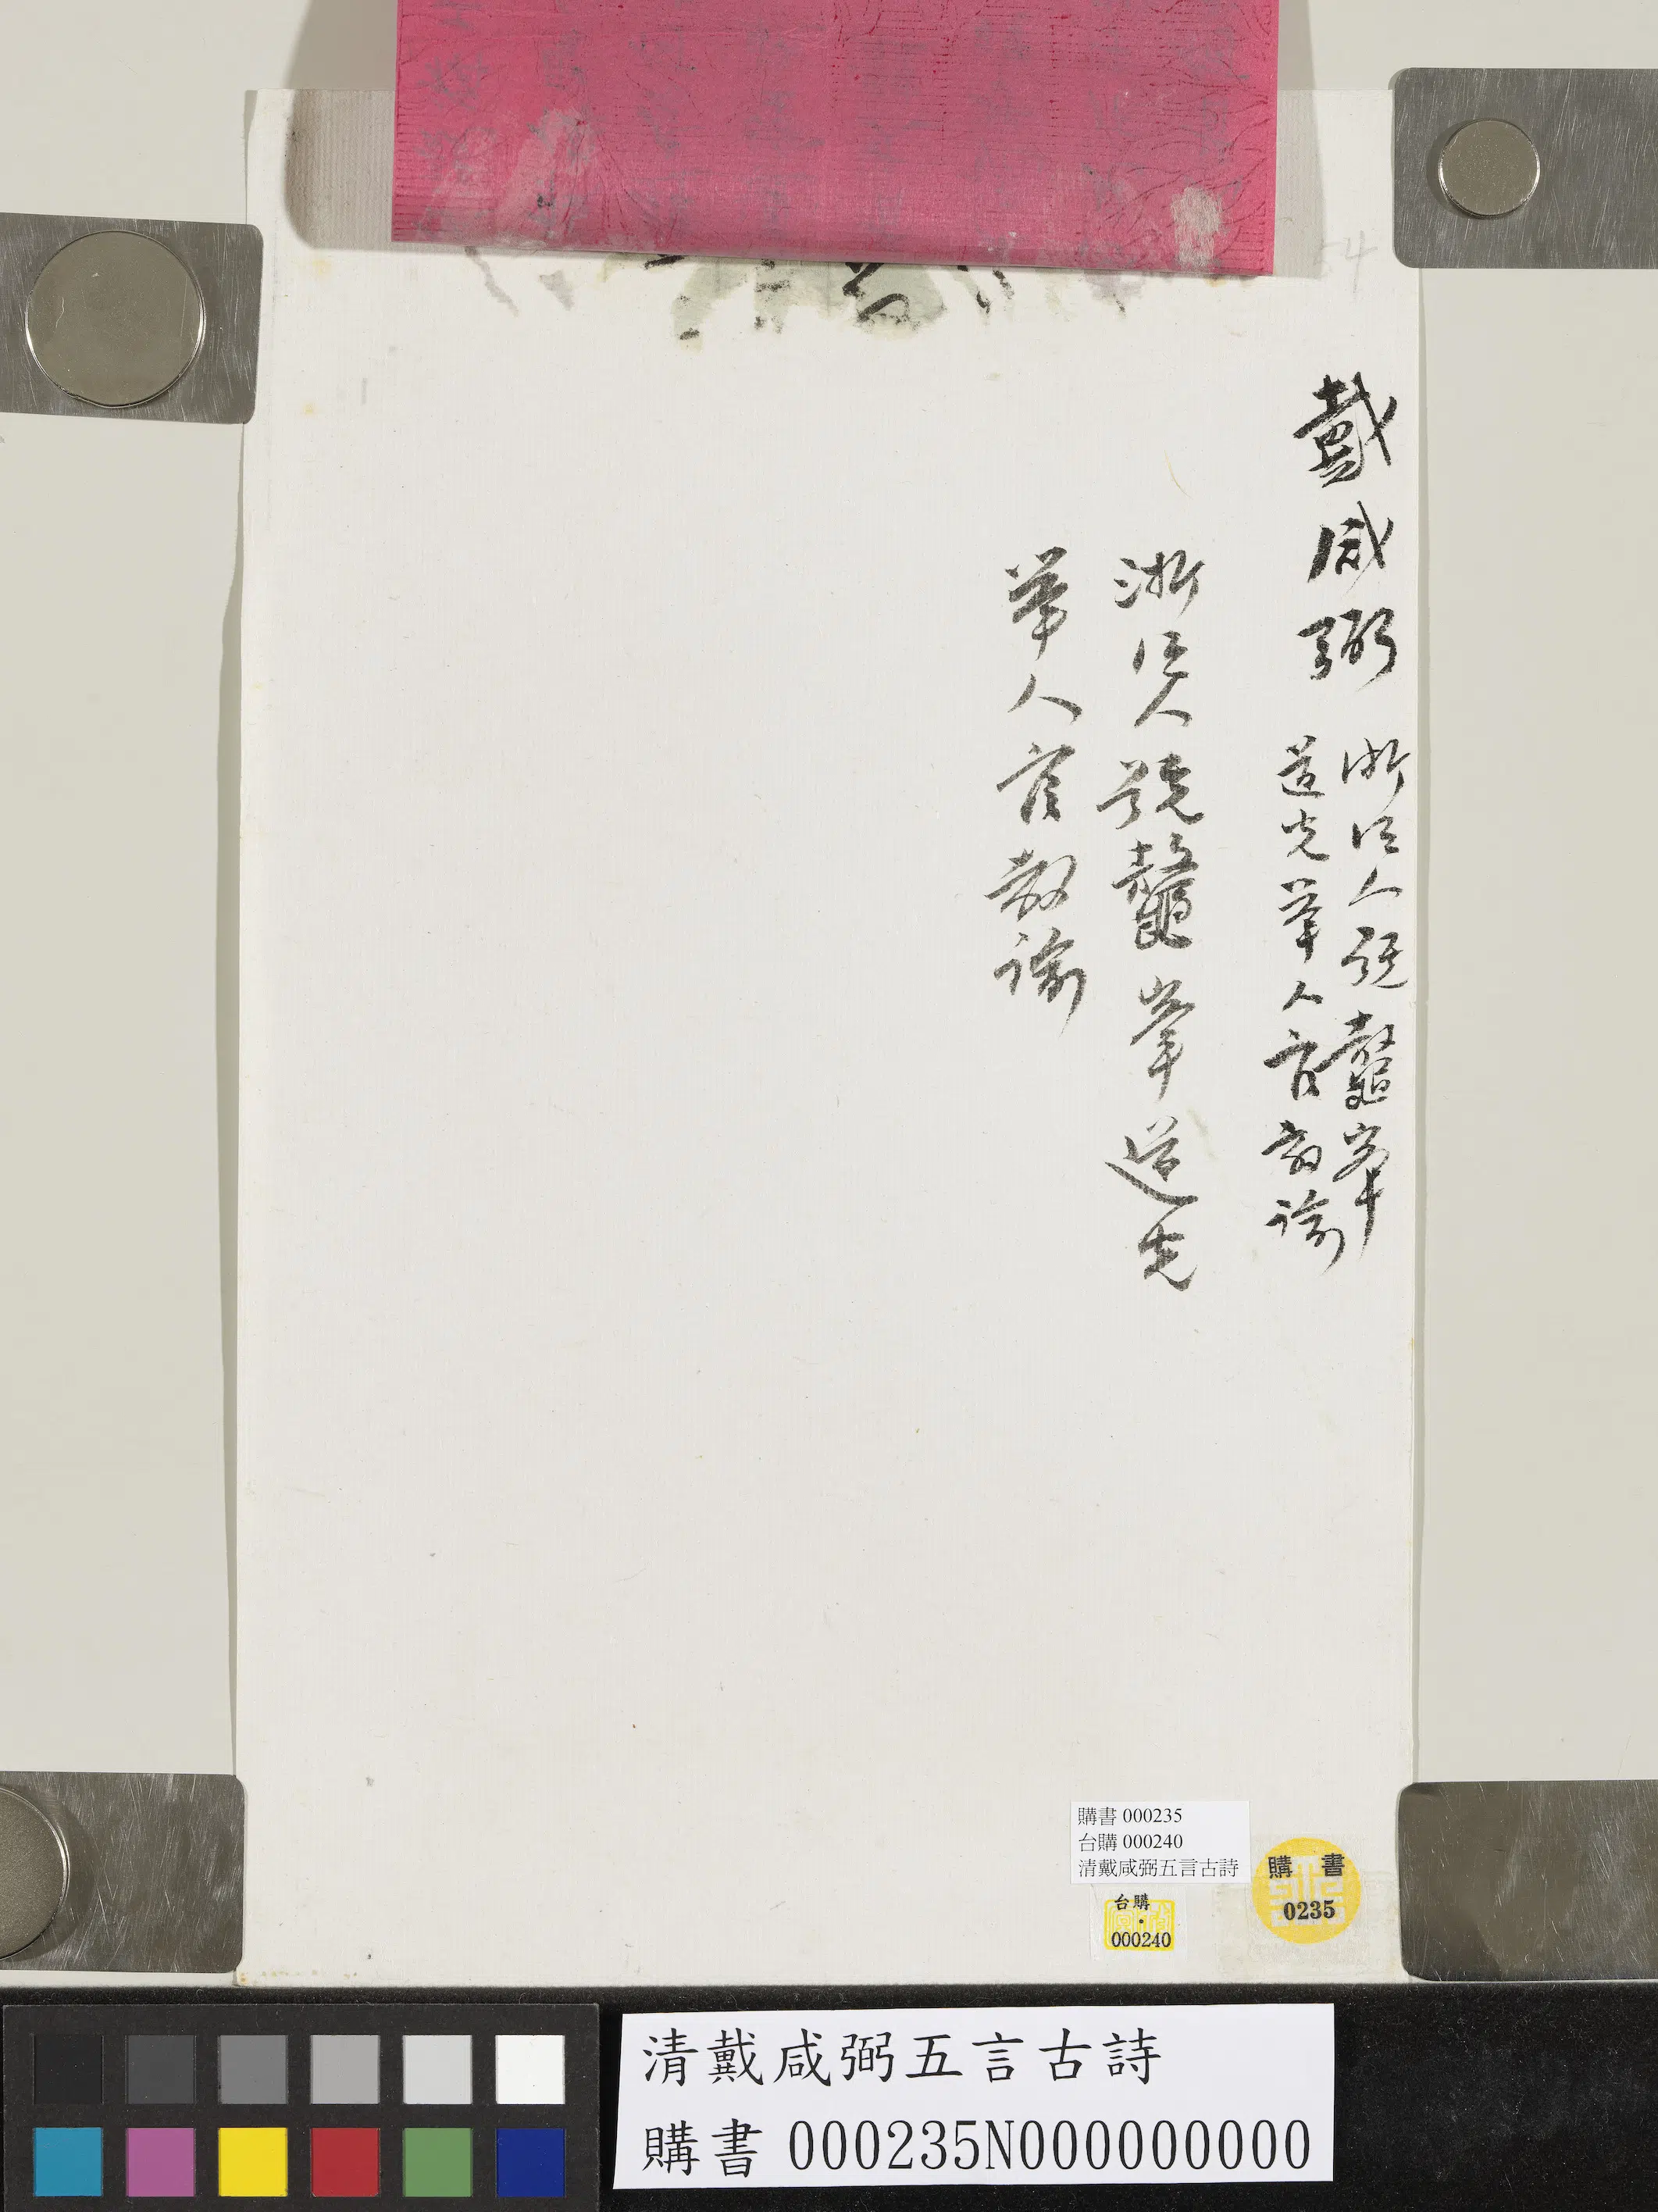 戴咸弼
浙江人號鼇峯
道光舉人官教諭
浙江人號鼇峯道光
舉人官教諭
購書 000235
台購 000240
清戴咸弼五言古詩
購書
0235
台購
000240
清戴咸弼五言古詩
購書 000235N000000000